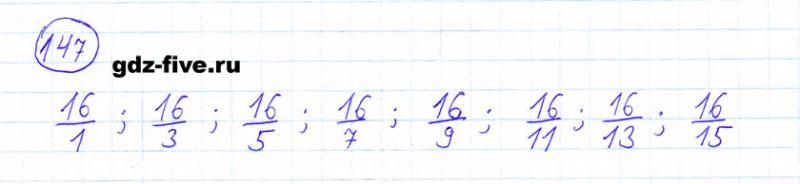 147
gdz-five.ru
16/1 ; 16/3 ; 16/5 ; 16/7 ; 16/9 ; 16/11 ; 16/13 ; 16/15